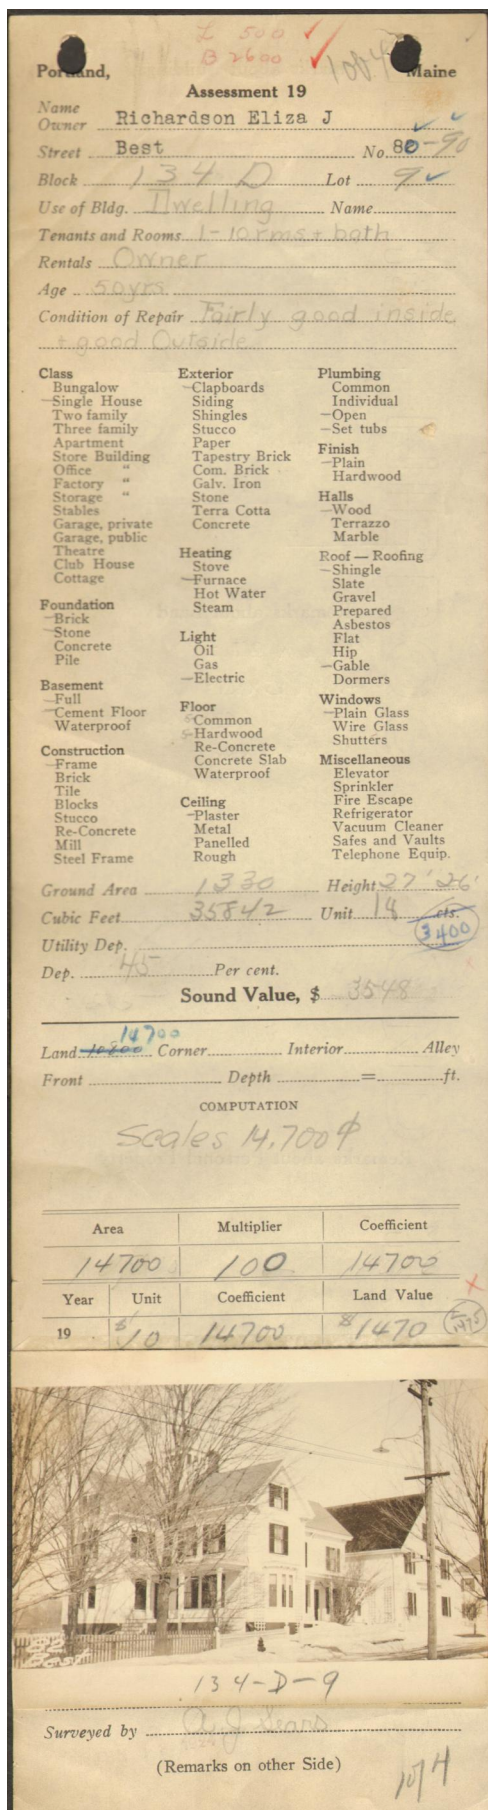 L 500
B 2600
1004
Portland, Maine
Assessment 19
Name
Owner Richardson Eliza J
Street Best No. 80-90
Block 134 D Lot 9
Use of Bldg. Dwelling Name
Tenants and Rooms 1-10 rms + bath
Rentals Owner
Age 50 yrs
Condition of Repair Fairly good inside
+ good Outside
Class
Bungalow
Single House
Two family
Three family
Apartment
Store Building
Office "
Factory "
Storage "
Stables
Garage, private
Garage, public
Theatre
Club House
Cottage
Foundation
Brick
Stone
Concrete
Pile
Basement
Full
Cement Floor
Waterproof
Construction
Frame
Brick
Tile
Blocks
Stucco
Re-Concrete
Mill
Steel Frame
Exterior
Clapboards
Siding
Shingles
Stucco
Paper
Tapestry Brick
Com. Brick
Galv. Iron
Stone
Terra Cotta
Concrete
Heating
Stove
Furnace
Hot Water
Steam
Light
Oil
Gas
Electric
Floor
Common
Hardwood
Re-Concrete
Concrete Slab
Waterproof
Ceiling
Plaster
Metal
Panelled
Rough
Plumbing
Common
Individual
Open
Set tubs
Finish
Plain
Hardwood
Halls
Wood
Terrazzo
Marble
Roof — Roofing
Shingle
Slate
Gravel
Prepared
Asbestos
Flat
Hip
Gable
Dormers
Windows
Plain Glass
Wire Glass
Shutters
Miscellaneous
Elevator
Sprinkler
Fire Escape
Refrigerator
Vacuum Cleaner
Safes and Vaults
Telephone Equip.
Ground Area 1330 Height 27' 26'
Cubic Feet 35842 Unit 18 cts.
3400
Utility Dep.
Dep. 45 Per cent.
Sound Value, $ 3548
14700
Land 10800 Corner Interior Alley
Front Depth = ft.
COMPUTATION
Scales 14.700
Area Multiplier Coefficient
14700 100 14700
Year Unit Coefficient Land Value
19 $10 14700 $1470 1475
82
Best
134-D-9
Surveyed by
(Remarks on other Side)